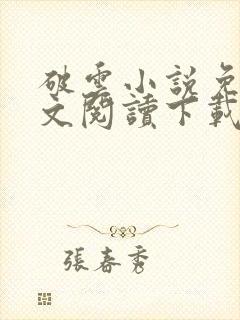 破雲小說免
文閱讀下載
張春秀